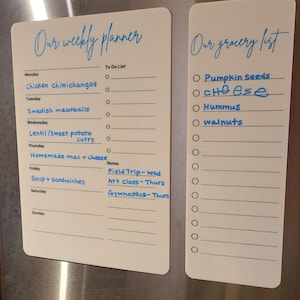 Our weekly planner
Monday
Chicken chimichangas
Tuesday
Swedish meatballs
Wednesday
Lentil/sweet potato
curry
Thursday
Homemade mac + cheese
Friday
Soup + sandwiches
Saturday
Sunday
To Do List
Notes
Field Trip - Wed
Art class - Thurs
Gymnastics - Thurs
Our grocery list
Pumpkin seeds
cheese
Hummus
walnuts